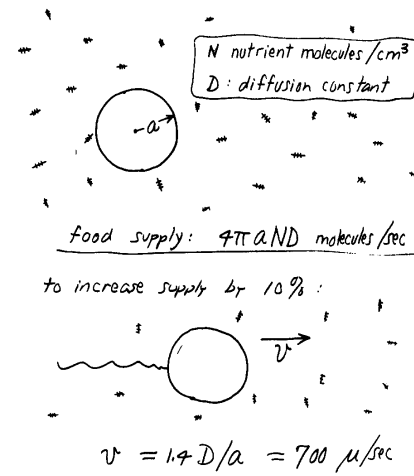 N nutrient molecules/cm³
D: diffusion constant
a
food supply: 4π aND molecules/sec
to increase supply by 10%:
v
v = 1.4 D/a = 700 μ/sec